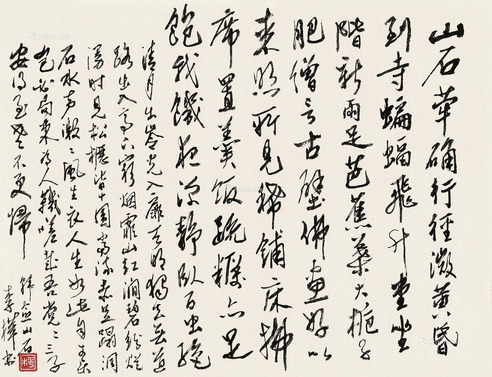 山石荦确行径微黄昏
到寺蝙蝠飛升堂坐
階新雨足芭蕉葉大栀子
肥僧言古壁佛画好以
来照所見稀铺床拂
席置羹饭疏粝亦足
飽我饑夜深静卧百虫绝
清月出岭光入扉天明独去無道
路出入高下窮烟霏山红澗碧纷烂
漫时見松枥皆十围當流赤足蹋澗
石水声激々風生衣人生如此自可乐
岂必局束为人鞿嗟哉吾党二三子
安得至老不更歸
韩愈山石
李铎书